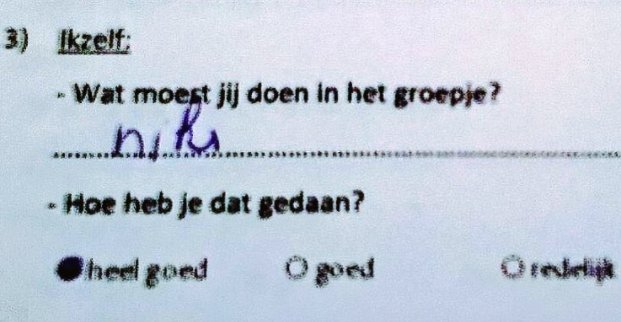 3) Ikzelf:
- Wat moest jij doen in het groepje?
niks
- Hoe heb je dat gedaan?
heel goed goed redelijk